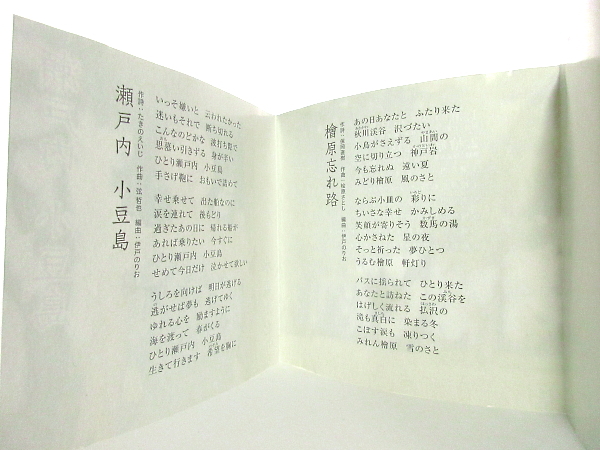 瀬戸内 小豆島
作詩:たきのえいじ 作曲:弦哲也 編曲:伊戸のりお
いっそ嫌いと 云われたかった
迷いもそれで 断ち切れる
こんなのどかな 波打ち際で
思慕い引きずる 身が辛い
ひとり瀬戸内 小豆島
手さげ鞄に おもいで詰めて
幸せ乗せて 出た船なのに
涙を連れて 後もどり
過ぎたあの日に 帰れる船が
あれば乗りたい 今すぐに
ひとり瀬戸内 小豆島
せめて今日だけ 泣かせて欲しい
うしろを向けば 明日が逃げる
逃がせば夢も 逃げてゆく
ゆれる心を 励ますように
海を渡って 春がくる
ひとり瀬戸内 小豆島
生きて行きます 希望を胸に
檜原忘れ路
作曲:松原さとし 編曲:伊戸のりお
あの日あなたと ふたり来た
秋川渓谷 沢づたい
小鳥がさえずる 山間の
空に切り立つ 神戸岩
今も忘れぬ 遠い夏
みどり檜原 風のさと
ならぶ小皿の 彩りに
ちいさな幸せ かみしめる
笑顔が寄りそう 数馬の湯
心かさねた 星の夜
そっと祈った 夢ひとつ
うるむ檜原 軒灯り
バスに揺られて ひとり来た
あなたと訪ねた この渓谷を
はげしく流れる 払沢の
滝も真白に 染まる冬
こぼす涙も 凍りつく
みれん檜原 雪のさと